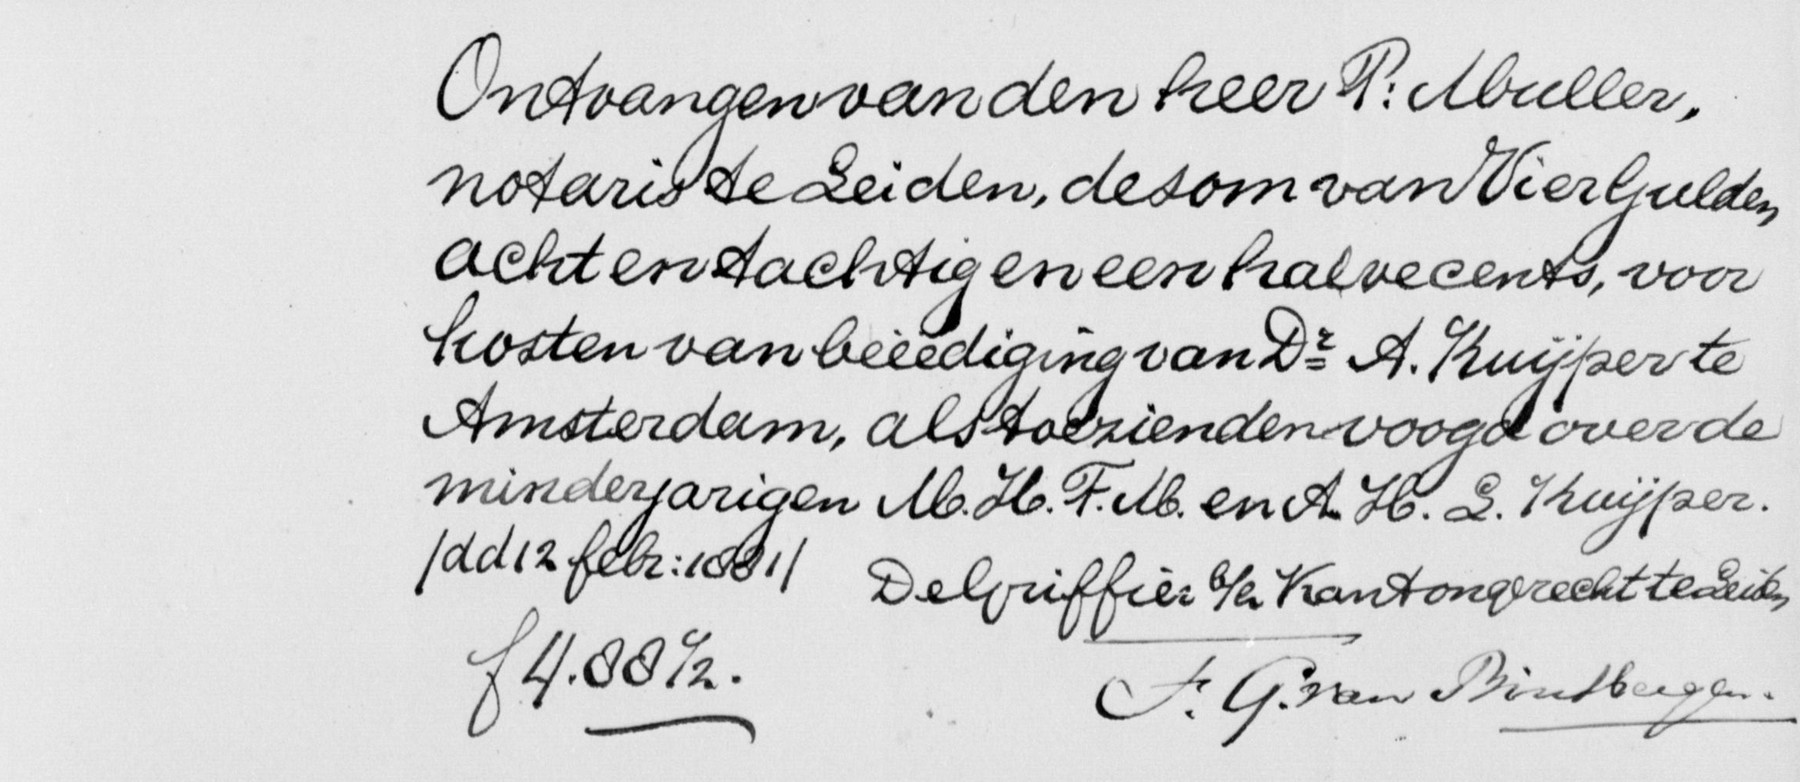 Ontvangen van den heer P: Muller,
notaris te Leiden, de som van Vier Gulden
acht en tachtig en een halve cents, voor
kosten van beëediging van Dr A. Kuijper te
Amsterdam, als toezienden voogd over de
minderjarigen M. H. F. M. en A. H. L. Kuijper.
/dd 12 febr: 1881/
De Griffier b/h Kantongerecht te Leiden
f 4.88 1/2.
F. G. van